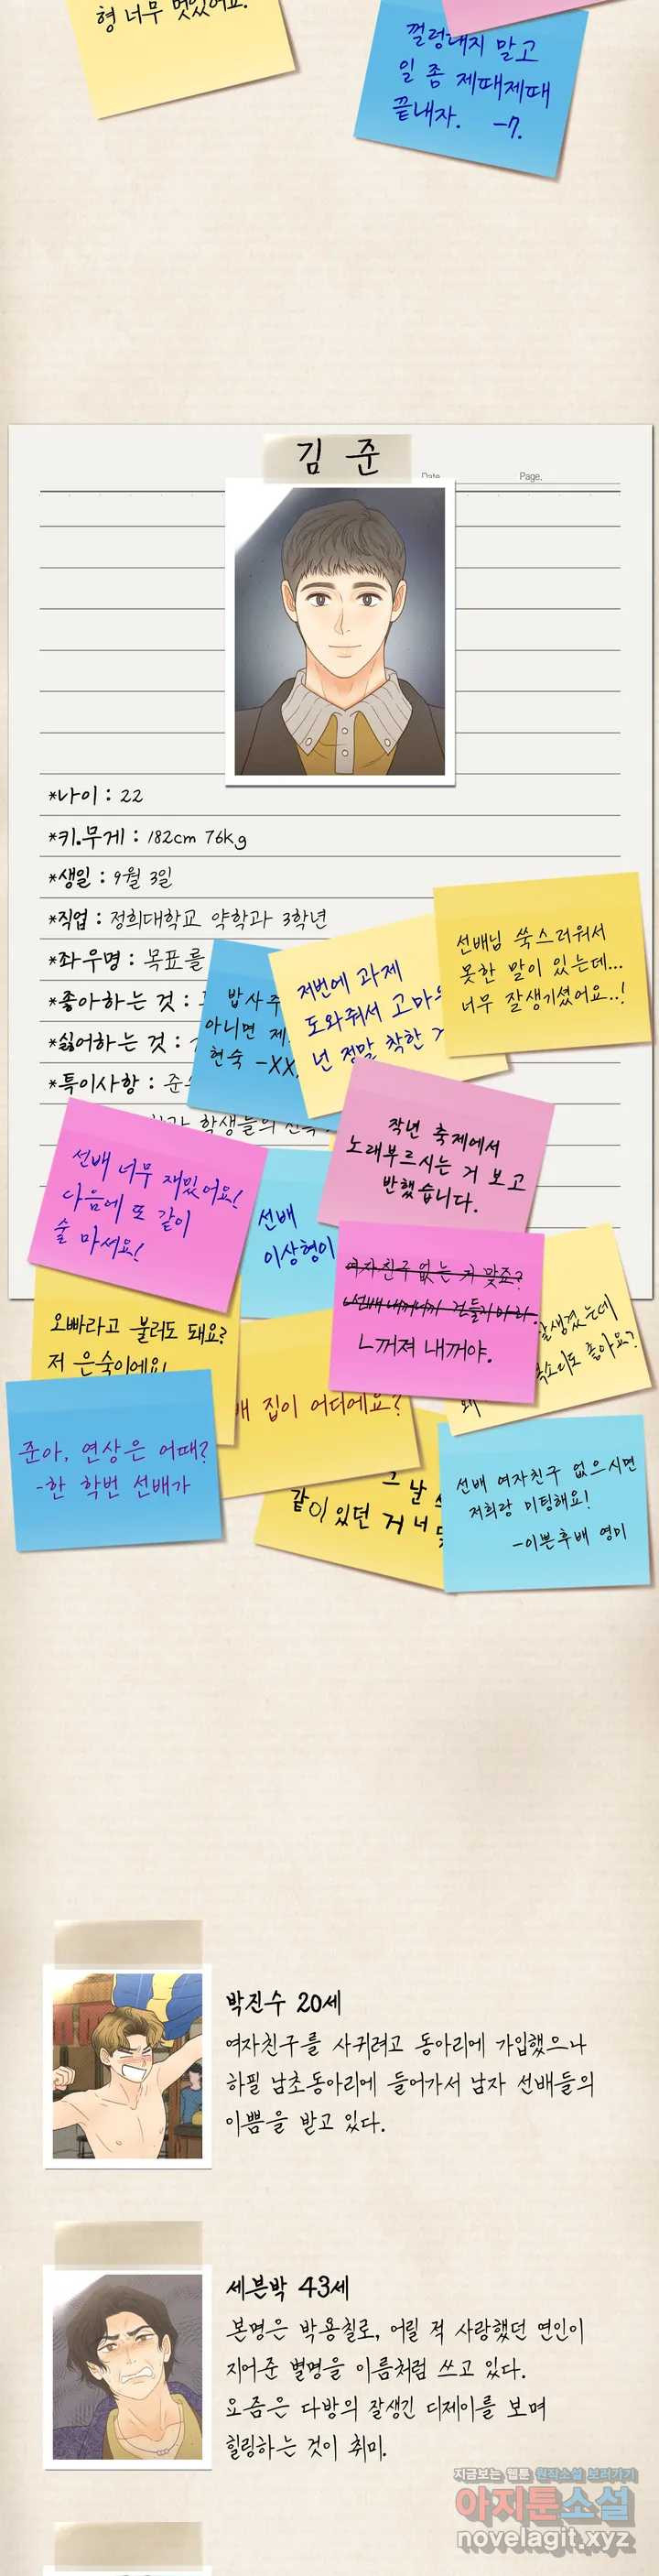 형 너무 멋있어요.
껄렁대지 말고
일 좀 제때제때
끝내자. -7.
김 준
Date
Page.
*나이 : 22
*키.무게 : 182cm 76kg
*생일 : 9월 3일
*직업 : 정희대학교 약학과 3학년
*좌우명 : 목표를
*좋아하는 것 :
*싫어하는 것 :
*특이사항 : 준
학생들의
선배님 쑥스러워서
못한 말이 있는데...
너무 잘생기셨어요..!
저번에 과제
도와줘서 고마
넌 정말 착한
밥 사주
아니면 제
현숙 -XX
작년 축제에서
노래부르시는 거 보고
반했습니다.
선배 너무 재밌어요!
다음에 또 같이
술 마셔요!
선배
이상형이
여자친구 없는 거 맞죠?
ㄴ선배 내꺼니까 건들지마라.
ㄴ꺼져 내꺼야.
잘생겼는데
목소리도 좋아요?
왜
오빠라고 불러도 돼요?
저 은숙이에요!
배 집이 어디에요?
준아, 연상은 어때?
-한 학번 선배가
그날
같이 있던 거 너
선배 여자친구 없으시면
저희랑 미팅해요!
-이쁜후배 영미
박진수 20세
여자친구를 사귀려고 동아리에 가입했으나
하필 남초동아리에 들어가서 남자 선배들의
이쁨을 받고 있다.
세븐박 43세
본명은 박용칠로, 어릴 적 사랑했던 연인이
지어준 별명을 이름처럼 쓰고 있다.
요즘은 다방의 잘생긴 디제이를 보며
힐링하는 것이 취미.
지금보는 웹툰 원작소설 보러가기
아지툰소설
novelagit.xyz